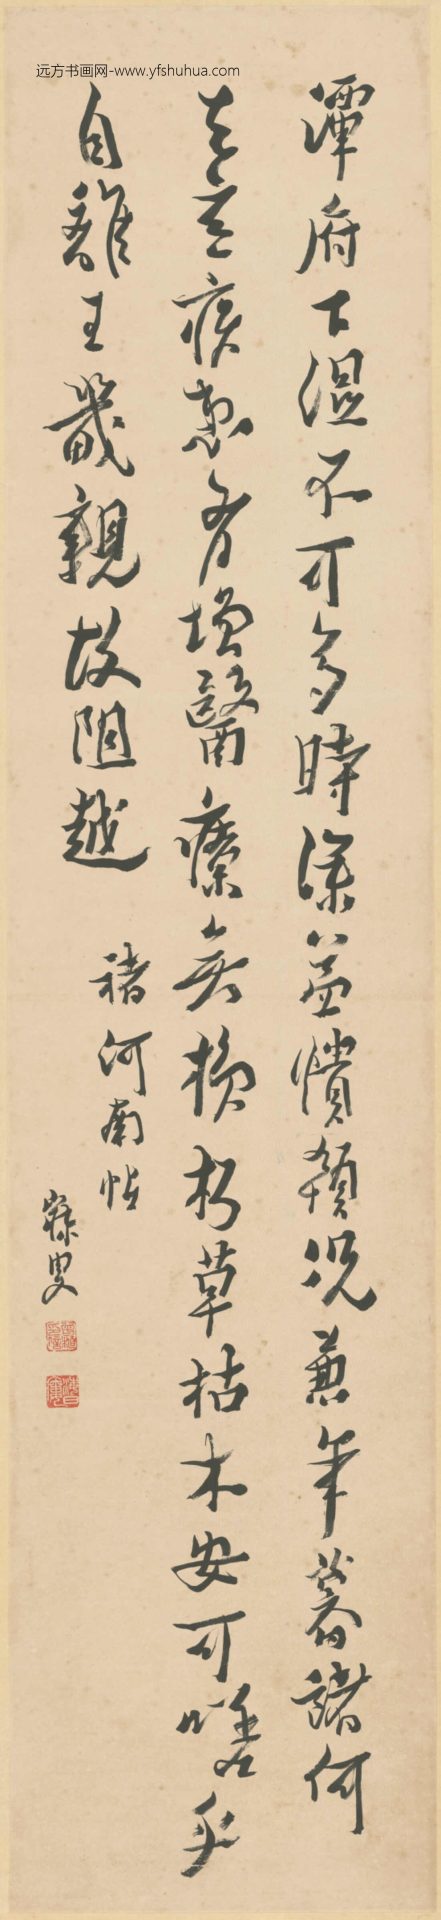 远方书画网-www.yfshuhua.com
潭府下湿不可多時深益憒頓況兼年暮諸何
去言疾患有增醫療無損朽草枯木安可嗟乎
自離王畿親故阻越
褚河南帖
寐叟